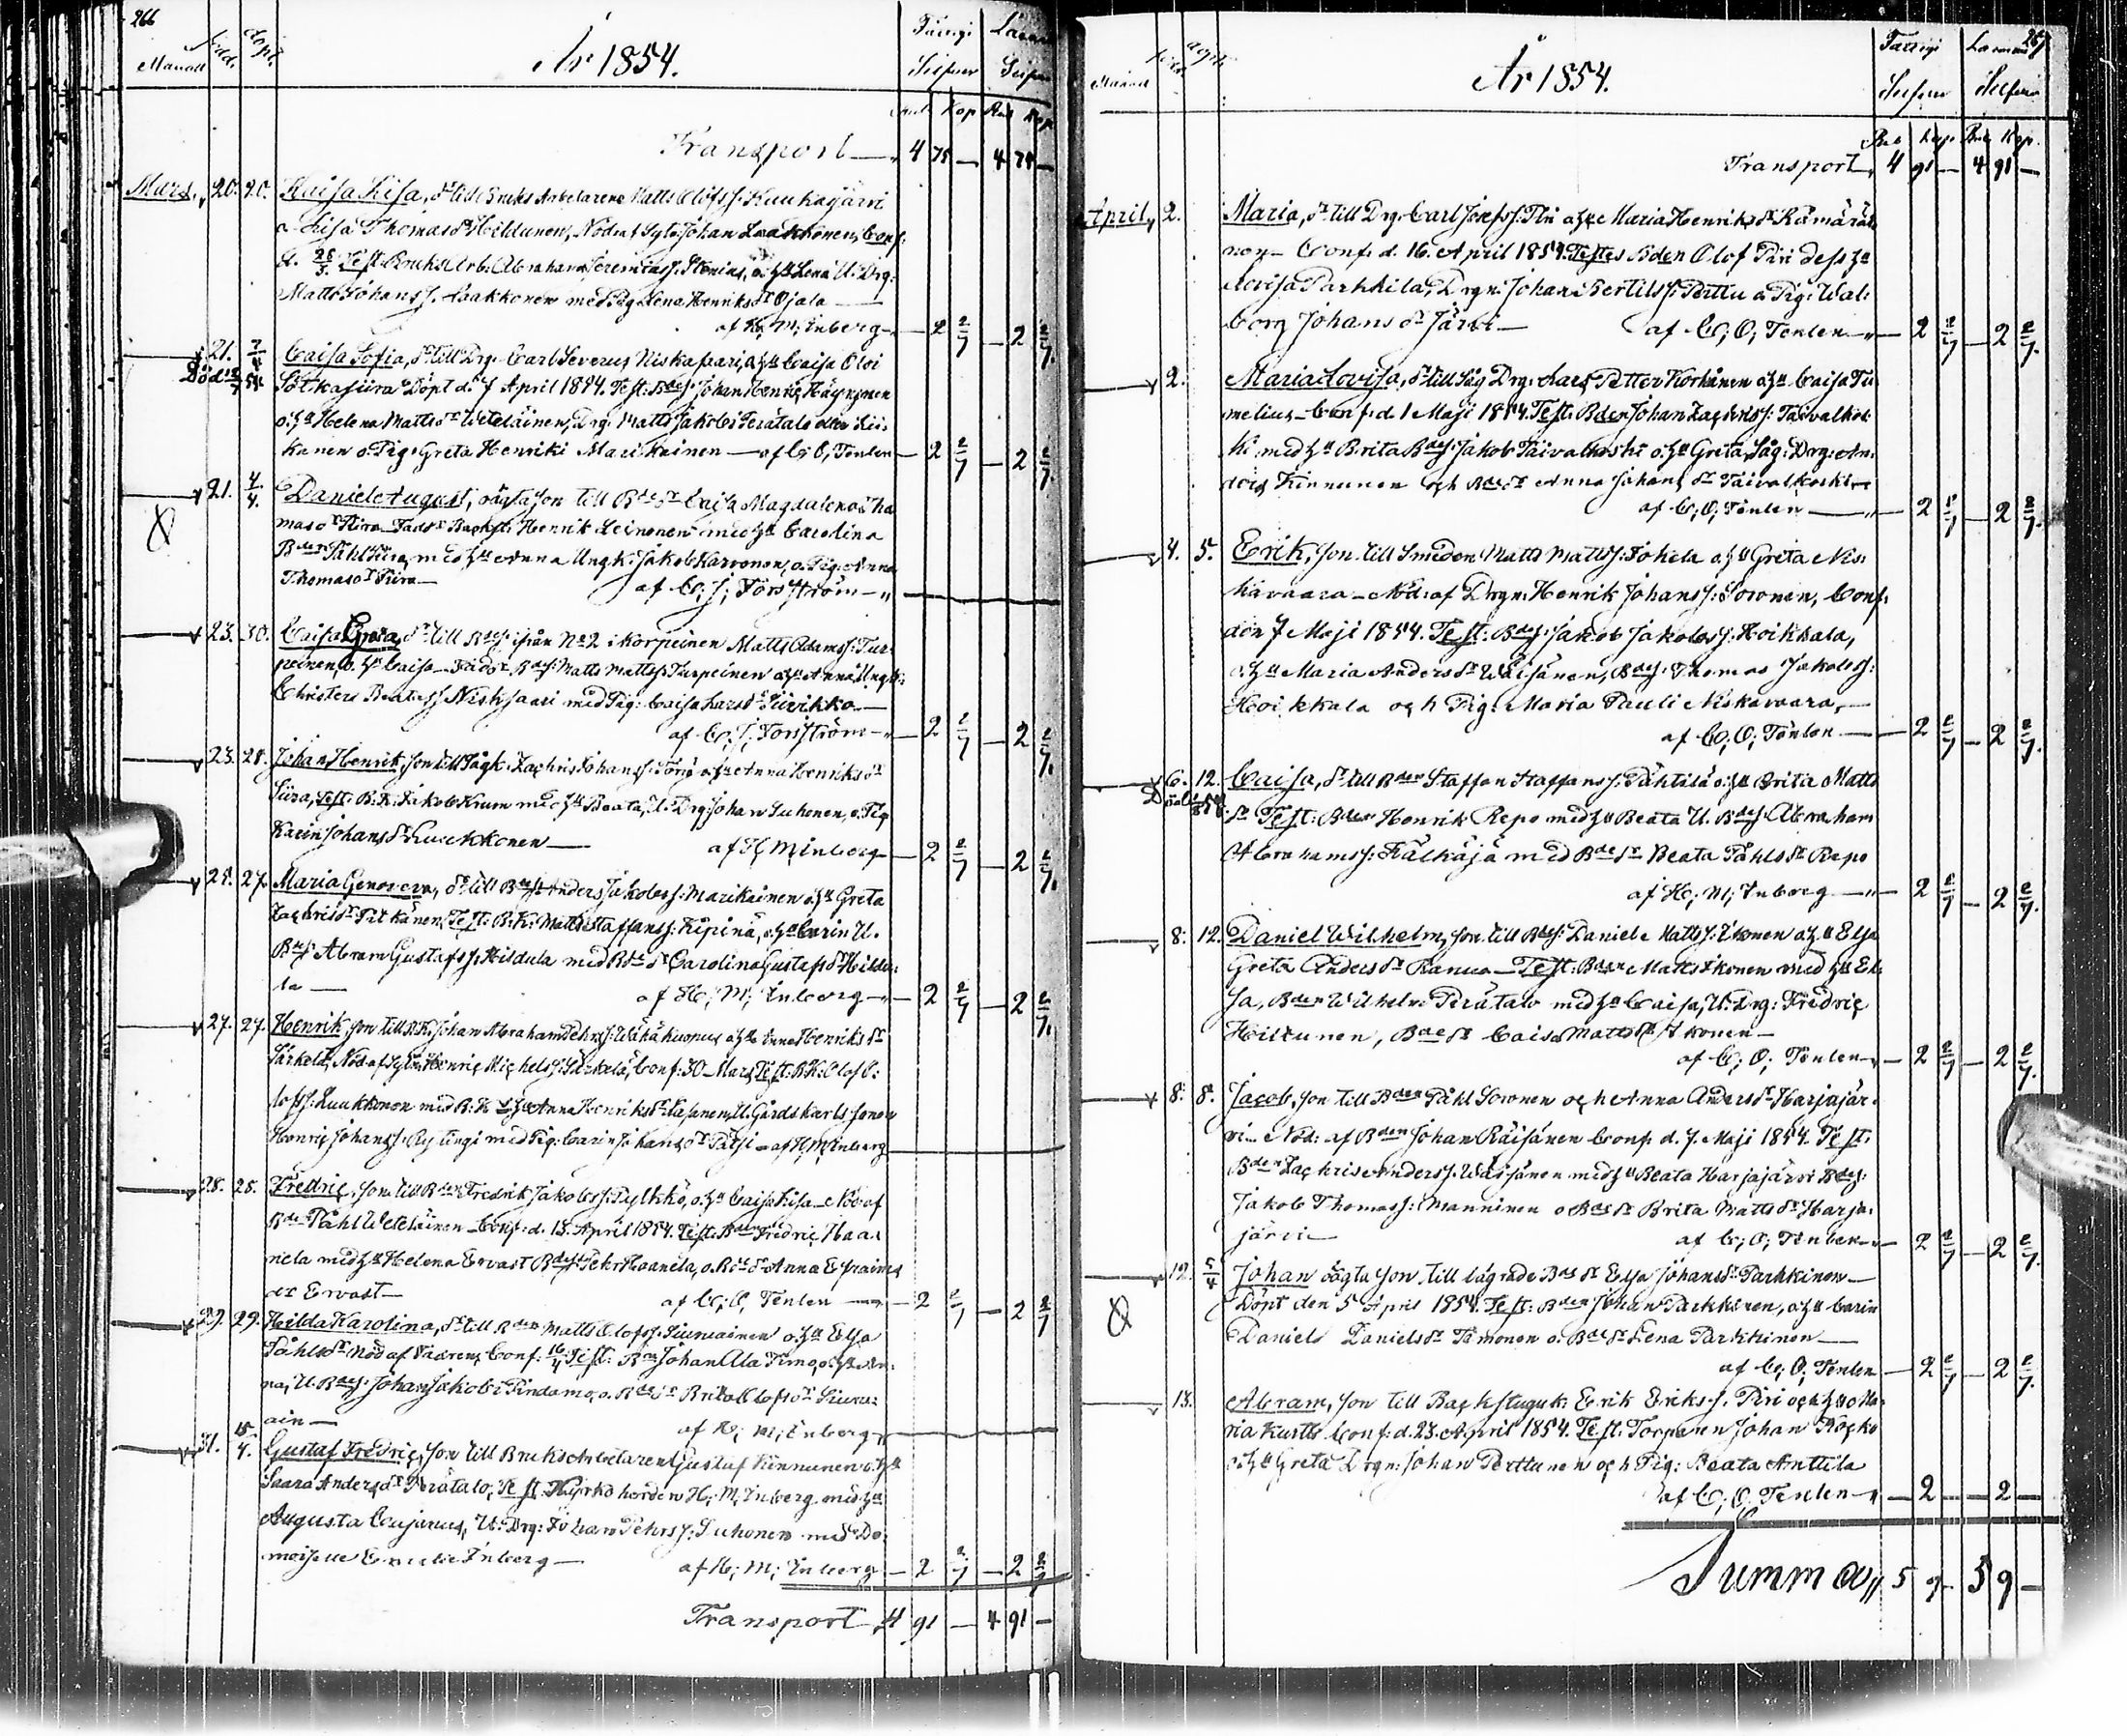 266
Månad Född. döpt. År 1854. Fattigi Lasaret
Silfver Silfver
Rub Kop Rub Kop
Transport 4 75 — 4 75 —
Mars, 20. 20. Kaisa Lisa, dr till Bruks Arbetaren Matts Olofss: Kuukasjärvi
o Lisa Thomasdr Hiltunen, Nöd: af Sytn: Johan Laakkonen, Conf:
d. 28/3. Test: Bruks Arb: Abraham Jeremiass: Stenius, o. hu Lena U: Drg:
Matts Johanss. Laakkonen med Pig: Lena Henriksdr Ojala —
af H; M; Inberg — 2 2/7 — 2 2/7
21. 7/4 Caisa Sofia, dr till Drg: Carl Severus Niskasaari, o hu Caisa Oloi
Död Sötkasiira Döpt d: 7 April 1854. Test: Bdes: Johan Henric Häyrynen
o: hu Helena Mattsdr Weteläinen, Drg: Matts Jakobi Perätalo eller Lii:
kanen o. Pig: Greta Henriki Marikainen — af C; O; Tenlen — 2 2/7 — 2 2/7
21. 4/4. Daniel August, oägta son till Bdedr Caisa Magdalena Tho
masdr Piira Faddr: Backst: Henrik Leinonen med hu Carolina
Bden Påhl Piira med hu Anna Ungk: Jakob Karvonen, o. Pig: Anna
Thomasdr Piira — af C; J; Forsström —
23. 30. Caisa Greta, dr till Bdes: ifrån No 2 i Korpeinen Matts Adamss: Tur
peinen, o. hu Caisa — Faddr: Bdes: Matts Mattss: Turpeinen o hu Anna Ungk:
Christer Beatess Niskasaari med Pig: Caisa Larsdr Piirikko —
af C; J; Forsström — 2 2/7 — 2 2/7.
23. 28. Johan Henrik, son till Sågk: Zachris Johanss: Törrö o hu Anna Henriksdr
Siira, Test: B. K: Jakob Krum med hu Beata, U: Drg: Johan Suhonen, o. Pig
Karin Johansdr Luukkonen — af H; M; Inberg — 2 2/7 — 2 2/7.
25. 27. Maria Genoveva, dr till Bdes: Anders Jakobss: Marikainen o hu Greta
Zachrisdr Pitkänen, Test: B. K: Matts Staffanss: Kipinä, o: hu Carin U.
Bdes: Abram Gustafss: Hildula med Bdedr Carolina Gustafsdr Hildu:
la — af H; M; Inberg — 2 2/7 — 2 2/7.
27. 27. Henrik, son till B. K. Johan Abraham Pehrs: Wähäkuopus o hu Anna Henriksdr
Särkelä, Nöd: af Sytn: Henric Michelss: Särkelä, Conf: 30 Mars Test: B. K: Olof O:
lofss: Luukkonen med B: K hu Anna Henriksdr U. Gårdskarls sonen
Henric Johanss: med Pig: Carin Johansdr Pätsi — af H; M; Inberg
28. 28. Fredric, son till Bden Fredrik Jakobss: Pylkkö, o. hu Caisa Lisa — Nöd: af
Bden Påhl Weteläinen — Conf: d. 13. April 1854. Test: Bden Fredric Haa:
nela med hu Helena Ervast Bdes: Pehr Haanela, o. Bdedr Anna Efraims
dr Ervast — af C; O; Tenlen — 2 2/7 — 2 2/7
29. 29. Hilda Karolina, dr till Bden Matts Olofss: Siuruainen o hu Elsa
Påhlsdr Nöd: af Fadren, Conf: 16/4 Test: Bden Johan Ala Timo, o. hu An:
na, U. Bdes: Johan Jakobi Pindamo, o. Bdedr Brita Olofsdr Siuru:
ain — af H; M; Inberg
31. 15/4. Gustaf Fredric, son till Bruks Arbetaren Gustaf Kinnunen o. hu
Saara Andersdr Perätalo, Test: Kyrkoherden H; M; Inberg med hu
Augusta Cajanus, U: Drg: Johan Pehrss: Suhonen med De:
moiselle Emelie Inberg — af H; M; Inberg — 2 2/7 — 2 2/7
Transport 4 91 — 4 91 —
267
Månad född döpt År 1854. Fattigi
Silfver Silfver
Rub Kop. Rub Kop.
Transport, 4 91 — 4 91 —
April, 2. Maria, dr till Drg: Carl Josefss: Piri o hu Maria Henriksdr Kämäräi
nen — Conf: d. 16. April 1854. Testes Bden Olof Piri dess hu
Lovisa Parkkila, Drgn: Johan Bertilss: Perttu o Pig: Wal:
borg Johansdr Järvi — af C; O; Tenlen — 2 2/7 — 2 2/7.
2. Maria Lovisa, dr till Såg Drg: Lars Petter Korhonen o hu Caisa Tu
melius — Conf: d. 1 Maji 1854. Test: Bden Johan Zachriss: Taivalkos
ki med hu Brita Bdes: Jakob Taivalkoski o: hu Greta, Såg: Drg: An:
ders Kinnunen och Bdedr Anna Johansdr Taivalkoski —
af C; O; Tenlen — 2 2/7 — 2 2/7.
4. 5. Erik, son till Smeden Matts Mattss: Jokela o. hu Greta Nis:
kavaara — Nöd: af Drgn: Henrik Johanss: Soronen, Conf:
den 7 Maji 1854. Test: Bdes: Jakob Jakobss: Hoikkala,
o. hu Maria Andersdr Wäisänen, Bdes: Thomas Jakobss:
Hoikkala och Pig: Maria Pauli Niskavaara, —
af C; O; Tenlen — 2 2/7 — 2 2/7.
6. 12. Caisa, dr till Bden Staffan Staffanss: Pähtilä o: hu Brita Matts
Död dr Test: Bden Henrik Repo med hu Beata U. Bdes: Abraham
Abrahamss: Kälkäjä med Bdedr Beata Påhlsdr Repo
af H; M; Inberg — 2 2/7 — 2 2/7.
8. 12. Daniel Wilhelm, son till Bdes: Daniel Matts: Ikonen o hu Elsa
Greta Andersdr Ranua — Test: Bden Matts Ikonen med hu El:
sa, Bden Wilhelm Perätalo med hu Caisa, U. Drg: Fredric
Hiltunen, Bdedr Caisa Mattsdr Ikonen —
af C; O; Tenlen — 2 2/7 — 2 2/7.
8. 8. Jacob, son till Bden Påhl Soronen och Anna Andersdr Harjajär:
vi — Nöd: af Bden Johan Räisänen Conf: d. 7. Maji 1854. Test:
Bden Zachris Anderss: Wäisänen med hu Beata Harjajärvi Bdes:
Jakob Thomass: Manninen o Bdedr Brita Mattsdr Harja:
järvi — af C; O; Tenlen — 2 2/7 — 2 2/7.
12. 5/4 Johan oägta son till lägrade Bdedr Elsa Johansdr Parkkinen —
Döpt den 5 April 1854. Test: Bden Johan Parkkinen, o hu Carin
Daniels Danielsdr Timonen o. Bdedr Lena Parkkinen —
af C; O; Tenlen — 2 2/7 — 2 2/7
13. Abram, son till Backstuguk: Erik Erikss. Piri och hu Ma:
ria Kurtti Conf: d. 23. April 1854. Test: Torparen Johan
o: hu Greta Drgn: Johan Perttunen och Pig: Beata Anttila
af C; O; Tenlen — 2 — 2 —
Summa 5 9 — 5 9 —